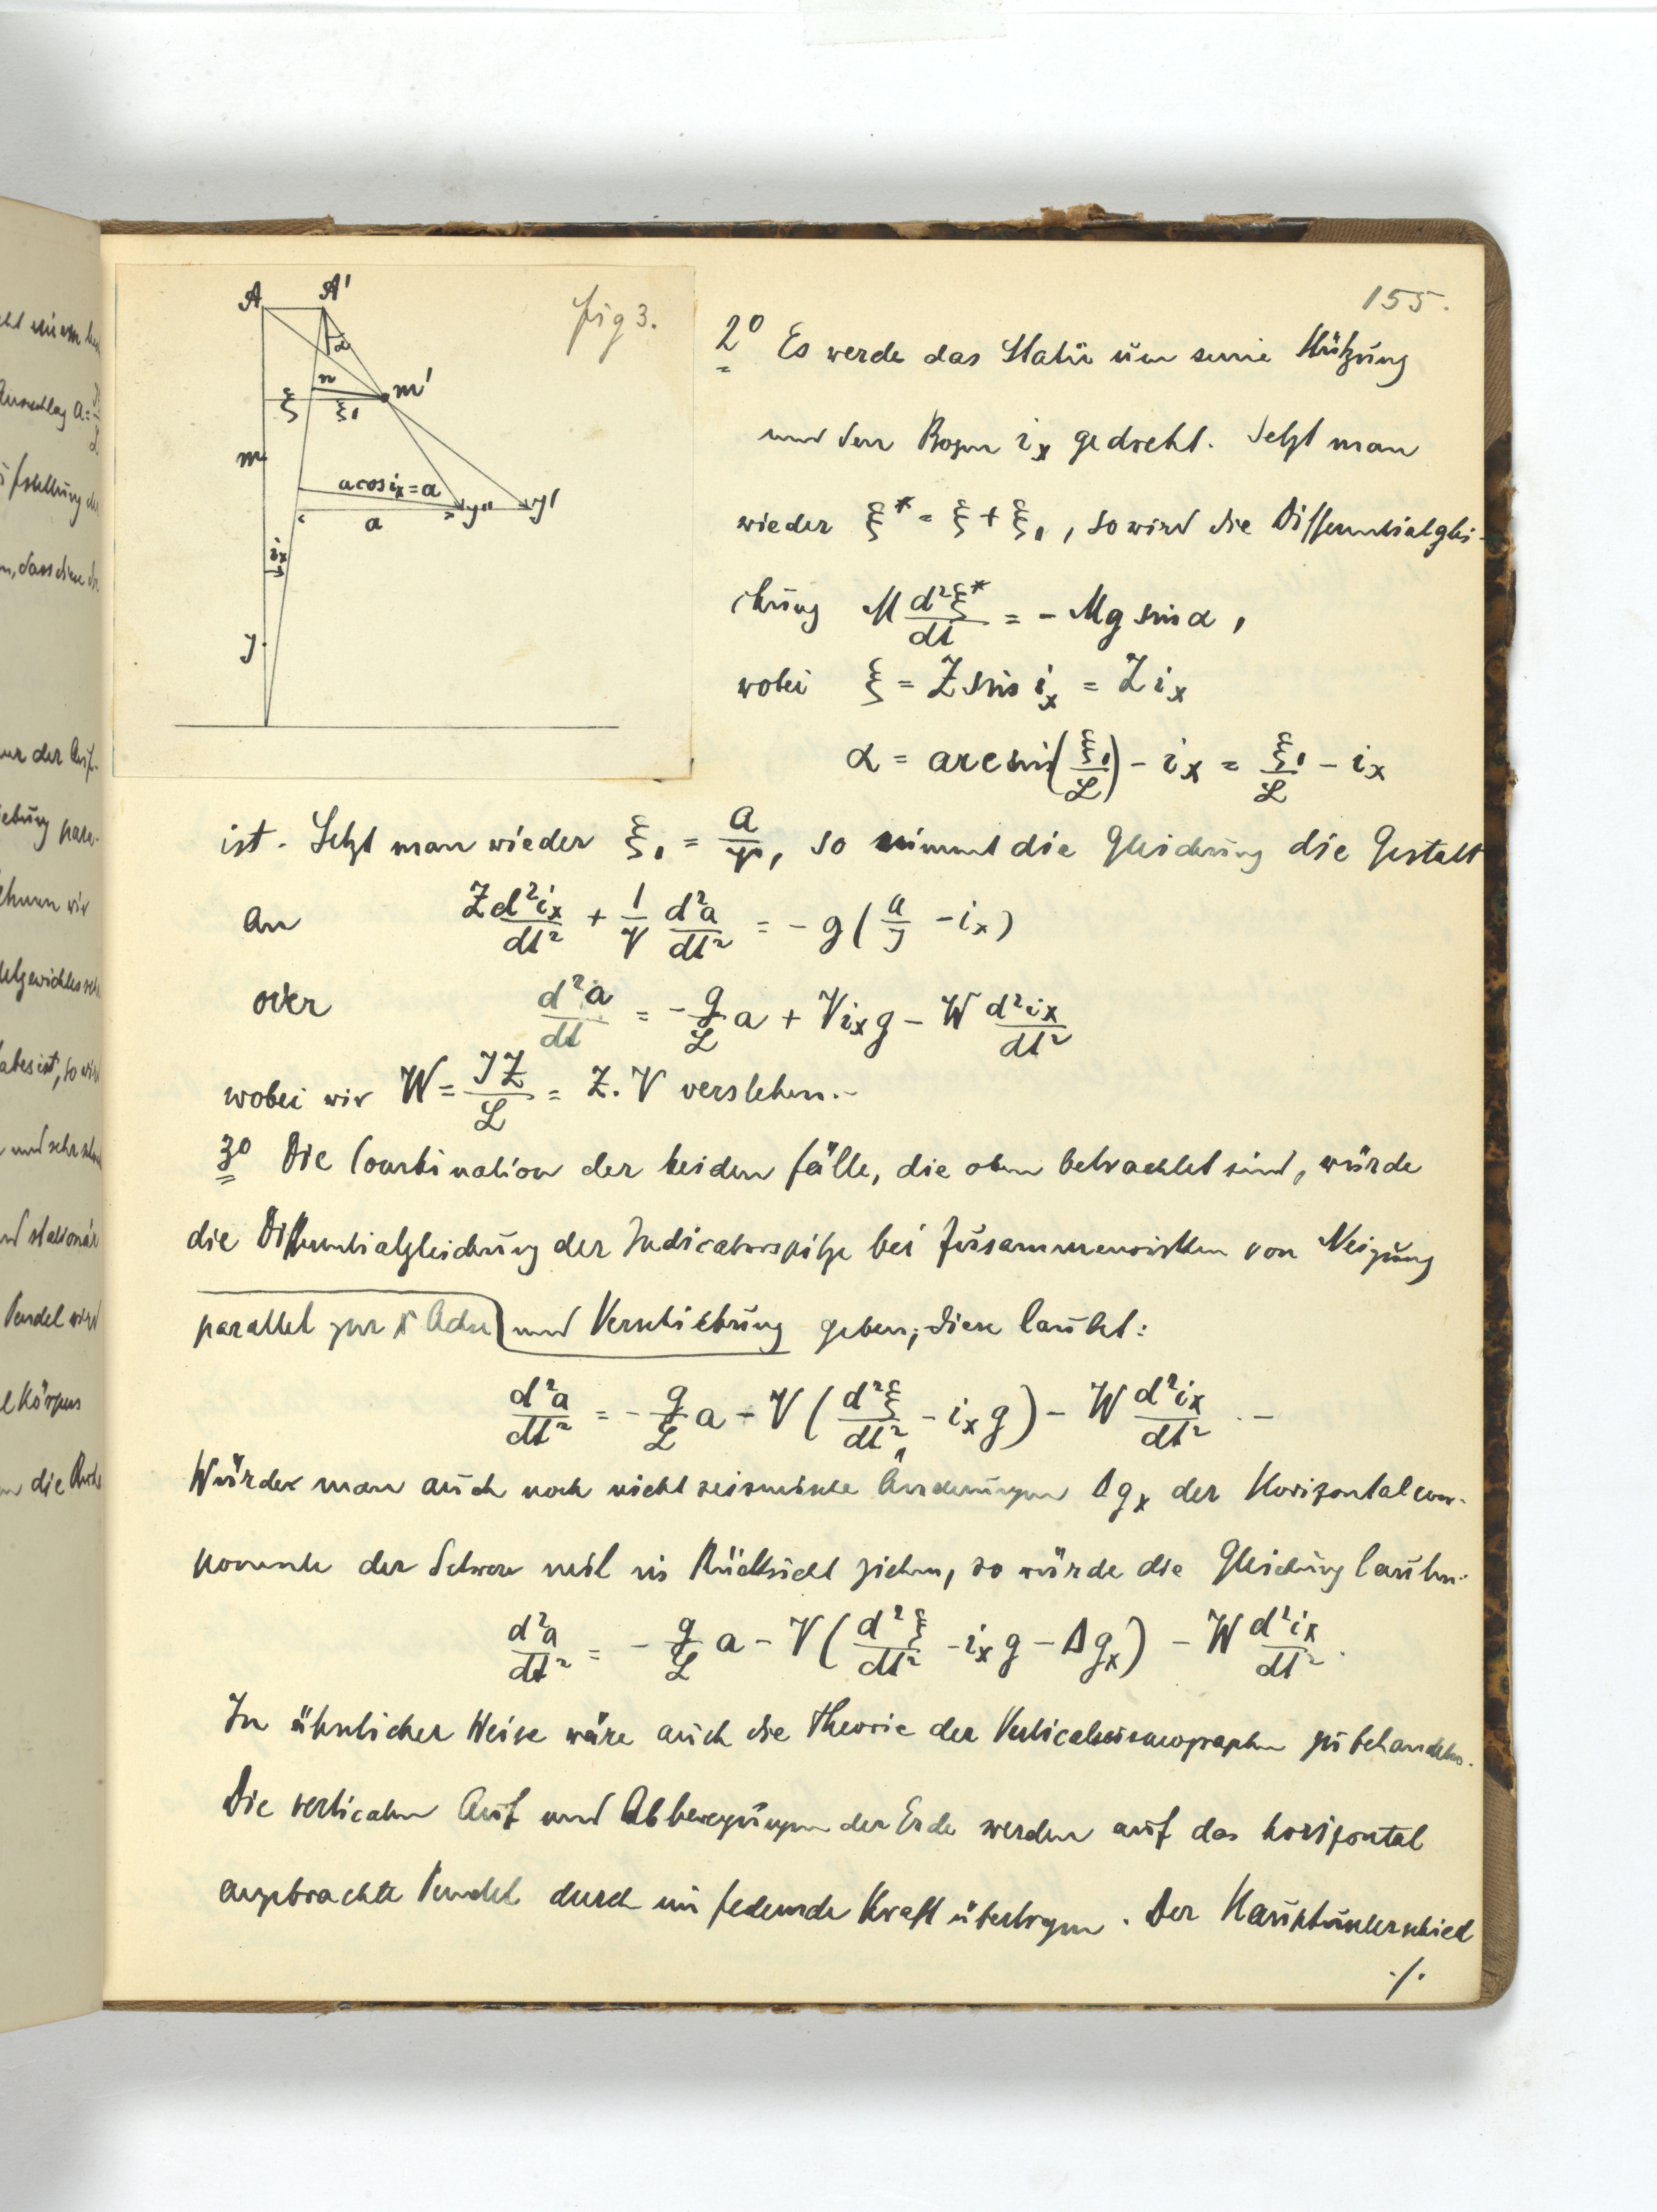 155.
fig 3.
A A'
α
n m'
ξ ξ₁
m
a cos iₓ = a
a y" y'
iₓ
J
2° Es werde das Stativ um seine Stützung
um den Bogen iₓ gedreht. Setzt man
wieder ξ* = ξ + ξ₁, so wird die Differentialglei-
chung M d²ξ*/dt = - Mg sin α,
wobei ξ = Z sin iₓ = Z iₓ
α = arc sin(ξ₁/L) - iₓ = ξ₁/L - iₓ
ist. Setzt man wieder ξ₁ = a/V, so nimmt die Gleichung die Gestalt
an Z d²iₓ/dt² + 1/V d²a/dt² = - g (a/J - iₓ)
oder d²a/dt = - g/L a + V iₓ g - W d²iₓ/dt²
wobei wir W = JZ/L = Z. V verstehen.-
3° Die Combination der beiden Fälle, die oben betrachtet sind, würde
die Differentialgleichung der Indicatorspitze bei Zusammenwirken von Neigung
parallel zur x Achse und Verschiebung geben; diese lautet:
d²a/dt² = - g/L a - V (d²ξ/dt² - iₓ g) - W d²iₓ/dt² . -
Würde man auch noch nicht seismische Änderungen Δgₓ der Horizontalcom-
ponente der Schwere mit in Rücksicht ziehen, so würde die Gleichung lauten:
d²a/dt² = - g/L a - V (d²ξ/dt² - iₓ g - Δgₓ) - W d²iₓ/dt² .
In ähnlicher Weise wäre auch die Theorie der Verticalseismographen zu behandeln.
Die verticalen Auf und Abbewegungen der Erde werden auf das horizontal
angebrachte Pendel durch eine federnde Kraft übertragen. Der Hauptunterschied
./.